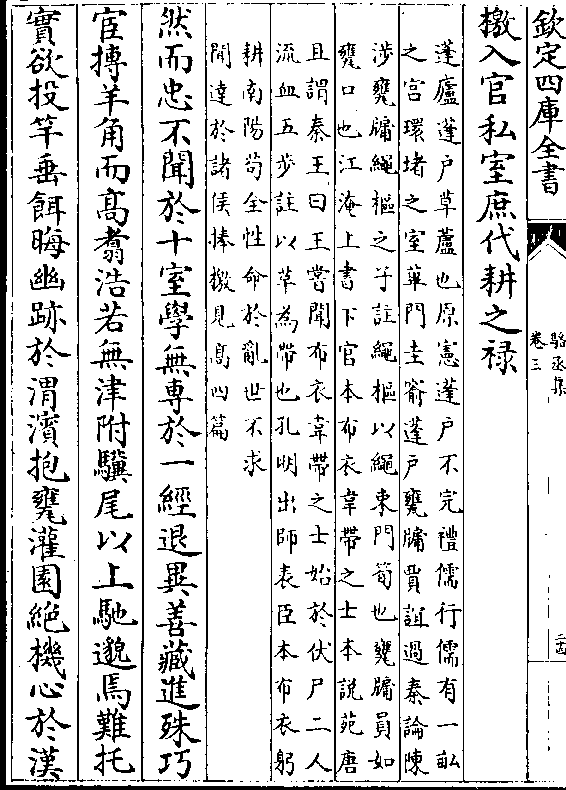 欽定四庫全書
駱丞集
卷三
二十四
檄入官私室庶代耕之禄
蓬廬蓬户草蘆也原憲蓬户不完禮儒行儒有一畝
之宫環堵之室蓽門圭窬蓬户甕牖賈誼過秦論陳
涉甕牖繩樞之子註繩樞以繩束門筍也甕牖員如
甕口也江淹上書下官本布衣韋帶之士本說苑唐
且謂秦王曰王嘗聞布衣韋帶之士始於伏尸二人
流血五步註以草為帶也孔明出師表臣本布衣躬
耕南陽苟全性命於亂世不求
聞達於諸侯捧檄見髙四篇
然而忠不聞於十室學無専於一經退異善藏進殊巧
宦搏羊角而髙翥浩若無津附驥尾以上馳邈焉難托
實欲投竿垂餌晦幽跡於渭濱抱甕灌園絶機心於漢